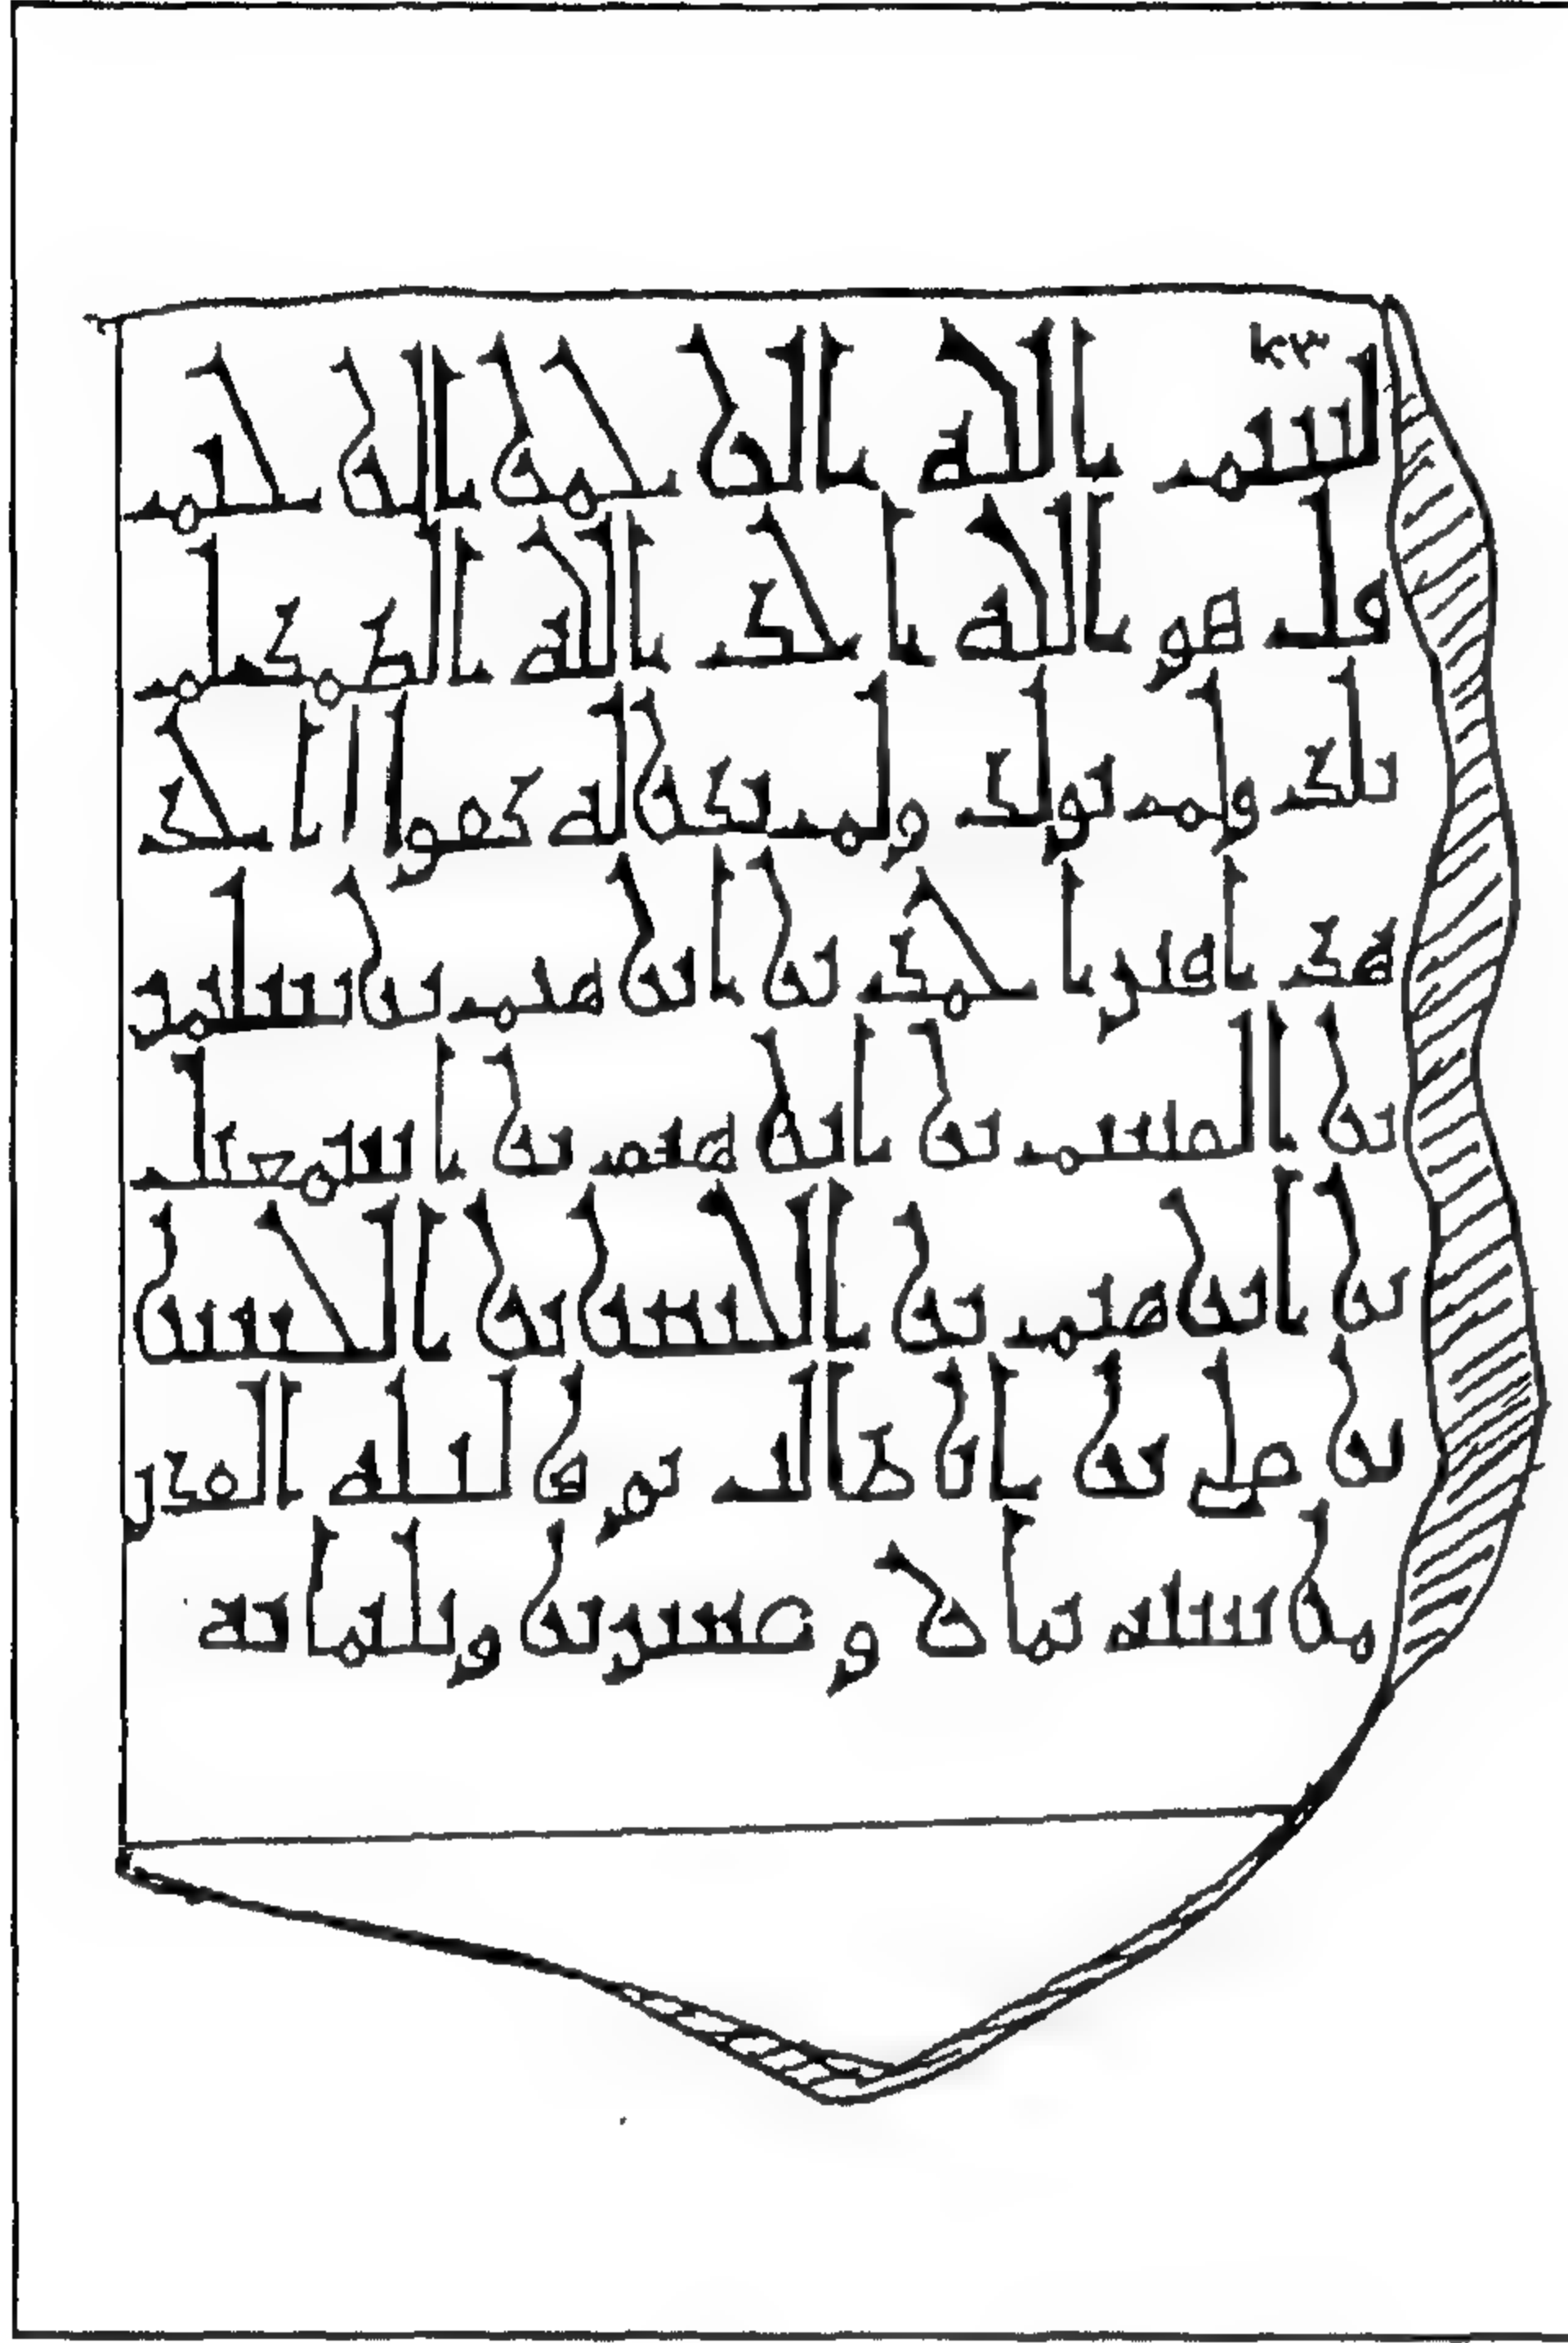 بسم الله الرحمن الرحيم
قل هو الله احد الله الصمد لم
يلد ولم يولد ولم يكن له كفوا احد
هذا قبر احمد بن ابرهيم بن سليمن
بن القسم بن ابرهيم بن اسمعيل
بن ابرهيم بن الحسن بن الحسن
بن علي بن ابي طالب توفي ليله القدر
من سنه ثمان وعشرين وثلثمائه